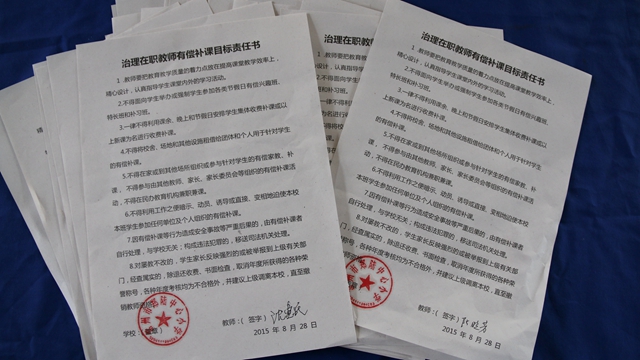 治理在职教师有偿补课目标责任书
1.教师要把教育教学质量的着力点放在提高课堂教学效率上，
精心设计，认真指导学生课堂内外的学习活动。
2.不得面向学生举办或强制学生参加各类节假日有偿兴趣班、
特长班和补习班。
3.一律不得利用课余、晚上和节假日安排学生集体收费补课或以
上新课为名进行收费补课。
4.不得将校舍、场地和其他设施租借给团体和个人用于针对学生
的有偿补课。
5.不得在家或到其他场所组织或参与针对学生的有偿家教、补
课，不得参与由其他教师、家长、家长委员会等组织的有偿补课活
动，不得在民办教育机构兼职兼课。
6.不得利用工作之便暗示、动员、诱导或直接、变相地迫使本校
本班学生参加任何单位及个人组织的有偿补课。
7.因有偿补课等行为造成安全事故等严重后果的，由有偿补课者
自行处理，与学校无关；构成违法犯罪的，移送司法机关处理。
8.对屡教不改的，学生家长反映强烈的或被举报到上级有关部
门，经查属实的，除退还收费、书面检查，取消年度所获得的各种荣
誉称号，各种年度考核均为不合格外，并建议上级调离本校，直至撤
销教师资格
学校：（盖章）
教师：（ 签字）
2015 年 8 月 28 日
治理在职教师有偿补课目标责任书
1.教师要把教育教学质量的着力点放在提高课堂教学效率上，
精心设计，认真指导学生课堂内外的学习活动。
2.不得面向学生举办或强制学生参加各类节假日有偿兴趣班、
特长班和补习班。
3.一律不得利用课余、晚上和节假日安排学生集体收费补课或以
上新课为名进行收费补课。
4.不得将校舍、场地和其他设施租借给团体和个人用于针对学生
的有偿补课。
5.不得在家或到其他场所组织或参与针对学生的有偿家教、补
课，不得参与由其他教师、家长、家长委员会等组织的有偿补课活
动，不得在民办教育机构兼职兼课。
6.不得利用工作之便暗示、动员、诱导或直接、变相地迫使本校
本班学生参加任何单位及个人组织的有偿补课。
7.因有偿补课等行为造成安全事故等严重后果的，由有偿补课者
自行处理，与学校无关；构成违法犯罪的，移送司法机关处理。
8.对屡教不改的，学生家长反映强烈的或被举报到上级有关部
门，经查属实的，除退还收费、书面检查，取消年度所获得的各种荣
誉称号，各种年度考核均为不合格外，并建议上级调离本校，直至撤
教师：（ 签字）
2015 年 8 月 28 日